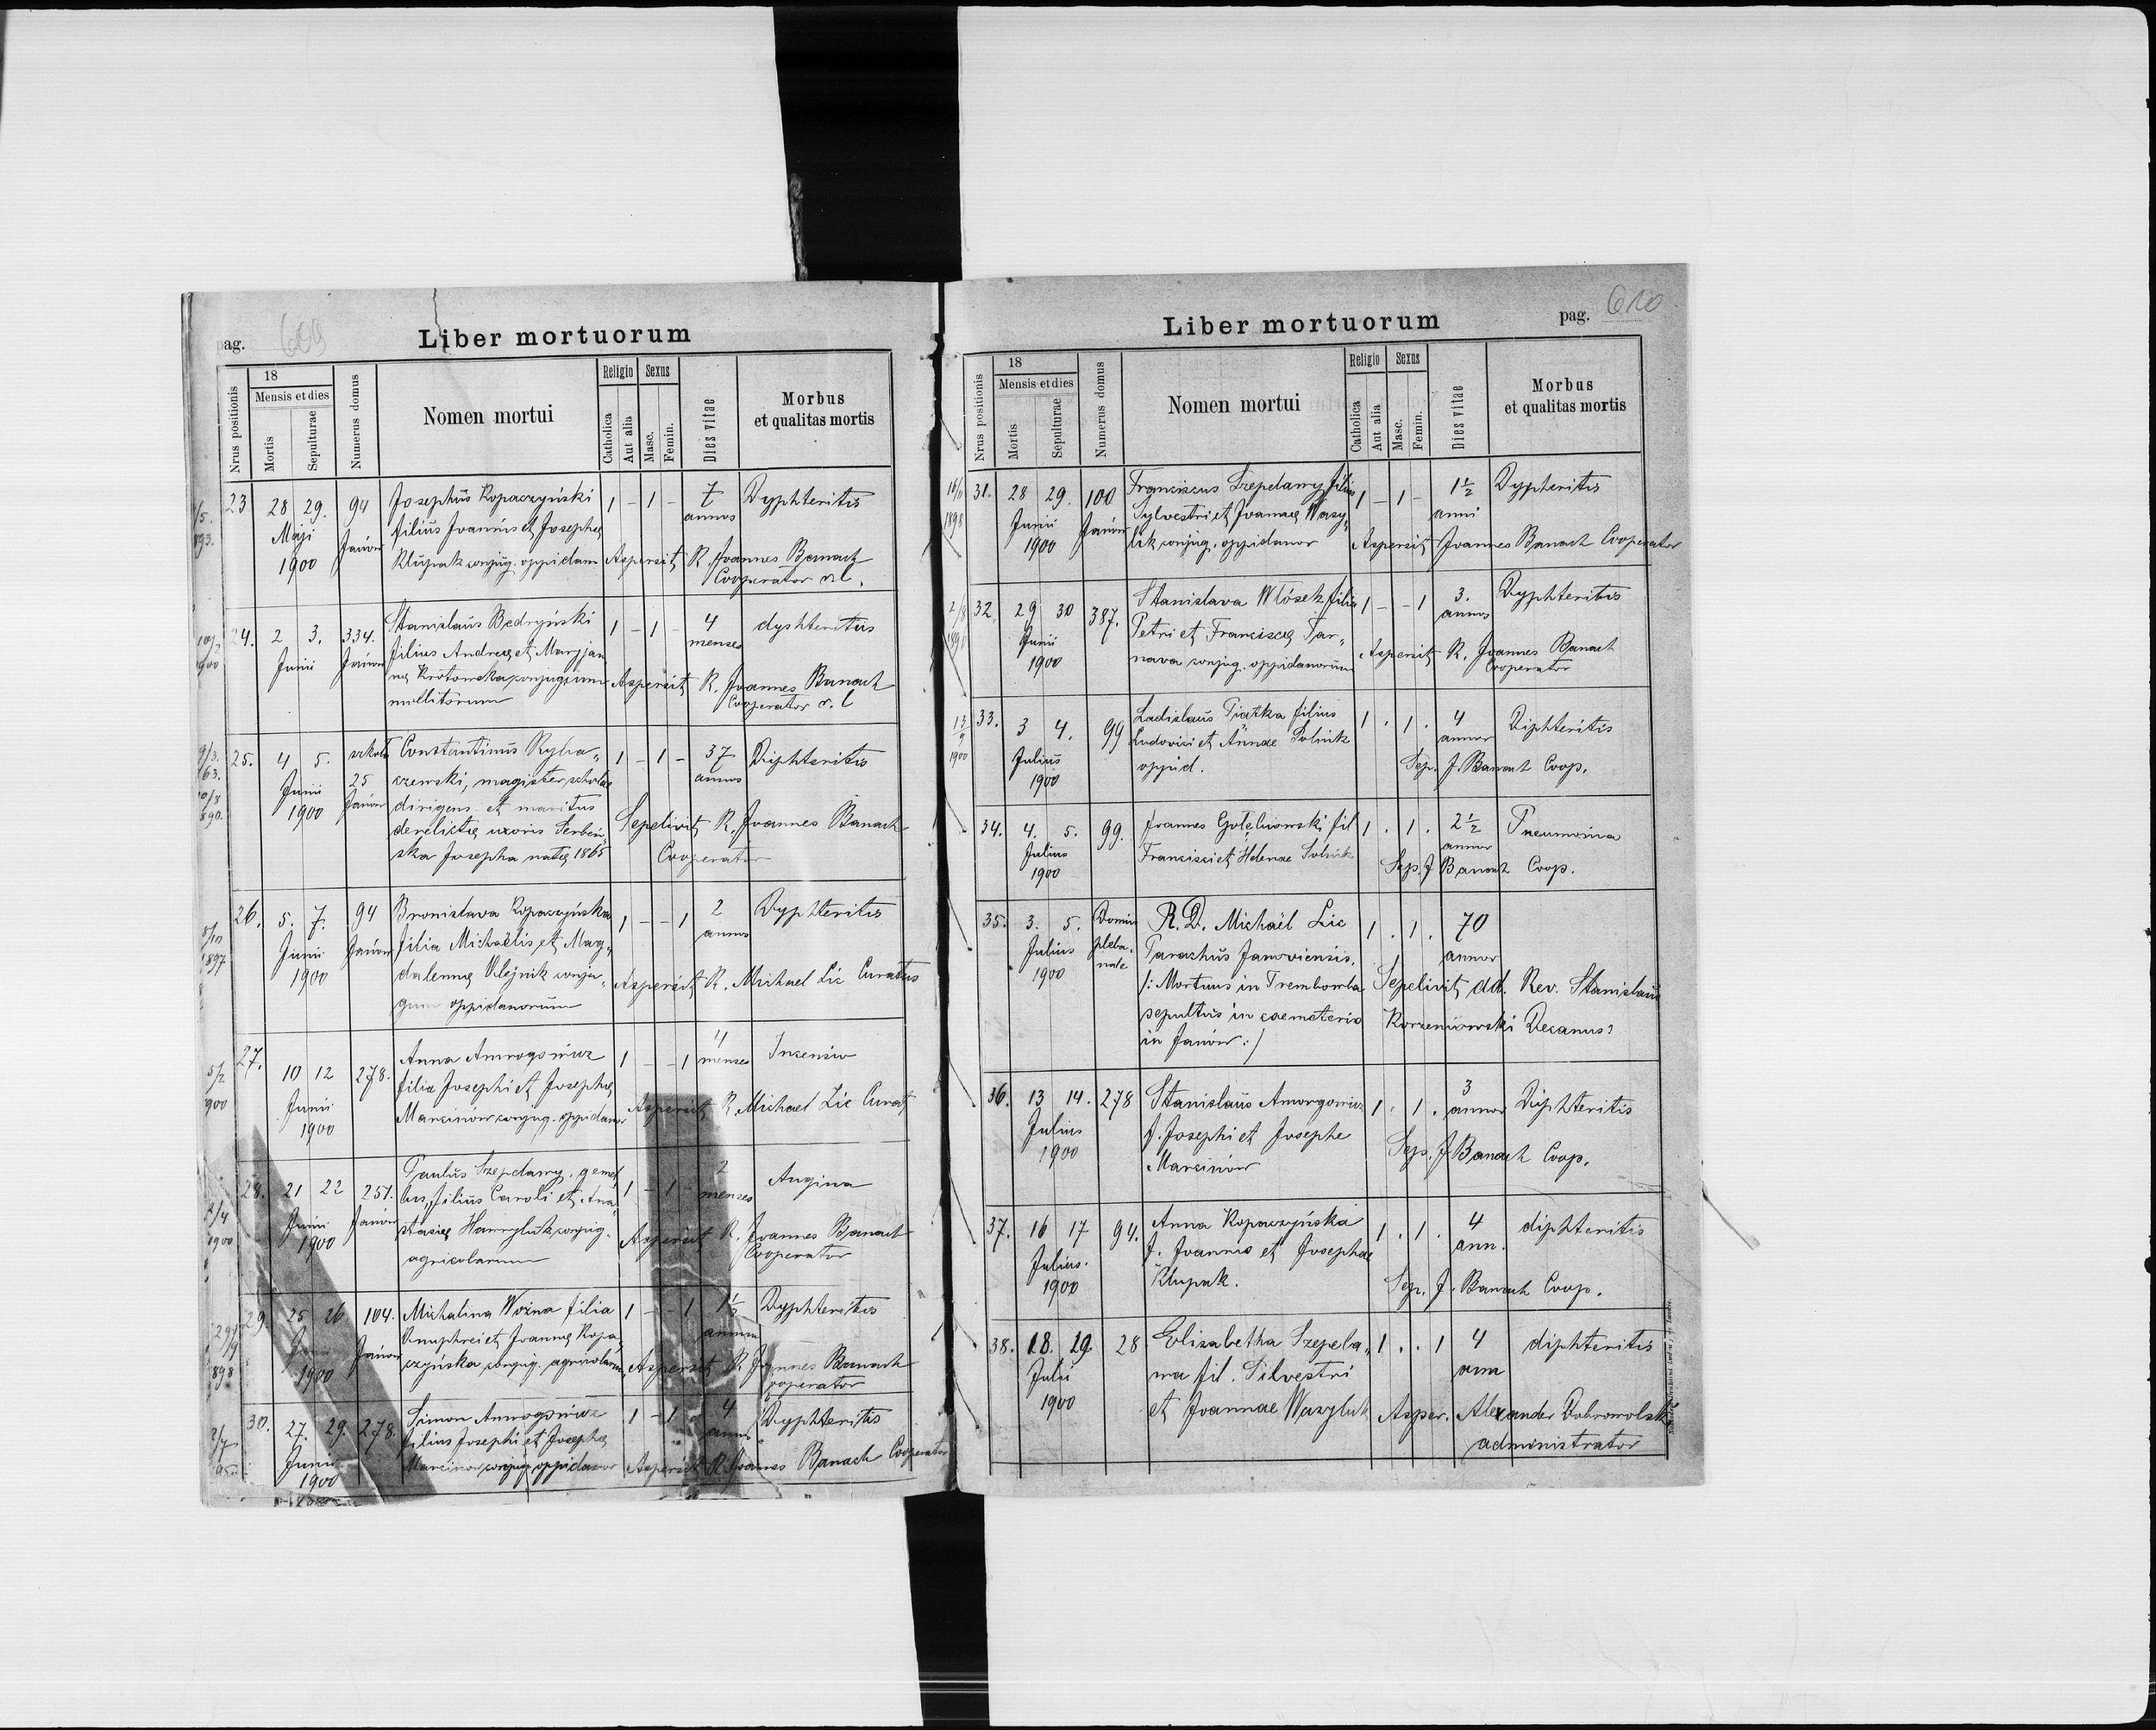 pag. 609
Liber mortuorum
Nrus positionis
18
Mensis et dies
Mortis
Sepulturae
Numerus domus
Nomen mortui
Religio
Catholica
Aut alia
Sexus
Masc.
Femin.
Dies vitae
Morbus
et qualitas mortis
23 28 29. 94 Josephus Kopaczyński 1 - 1 - 7 Dyphteritis
Maji Janów filius Joannis et Josephę annos
1900 Klupak conjug. oppidam Aspersit R. Joannes Banach
Cooperator
10/2 1900 24. 2 3. 334. Stanislaus Bedryński 1 - 1 - 4 dyshteritus
Junii Janów filius Andreę et Maryjan menses
nę Krotowska conjugum Aspersit R. Joannes Banach
mollitorum Cooperator
25. 4 5. szkoła Constantinus Ryba„ 1 - 1 - 37 Diphteritis
Junii 25 czewski, magister scholae annos
1900 Janów dirigens et maritus
derelictę uxoris Serbeń Sepelivit R. Joannes Banach
ska Josepha natę 1865 Cooperator
1897 26. 5. 7. 94 Bronislava Kopaczyńska 1 - - 1 2 Dyphteritis
Junii Janów filia Michaëlis et Mag„ annos
1900 dalennę Olejnik conju„ Aspersit R. Michael Lic Curatus
gum oppidanorum
5/2 900 27. 10 12 278. Anna Amrogowicz 1 - - 1 4 menses
Junii filia Josephi et Josephę
1900 Marcinów conjug. oppidanor Aspersit R. Michael Lic Curat.
1900 28. 21 22 251. Paulus Szepdawy, gemel 1 - 1 - 2 Angina
Junii Janów lus, filius Caroli et Ana„ menses
1900 stasię Hawryluk conjug. Aspersit R. Joannes Banach
agricolarum Cooperator
29. 25 26 104. Michalina Woźna filia 1 - - 1 1½ Dyphteritis
Junii Janów Onuphrei et Joannę Kopa„ annum
1900 czyńska conjug. agricolarum Aspersit R. Joannes Banach
Cooperator
30. 27. 29. 278. Simon Amrogowicz 1 - 1 4 Dyphteritis
Junii filius Josephi et Josephę anni
1900 Marcinów conjug. oppidanor Aspersit R. Joannes Banach Cooperator
Liber mortuorum
pag. 610
Nrus positionis
18
Mensis et dies
Mortis
Sepulturae
Numerus domus
Nomen mortui
Religio
Catholica
Aut alia
Sexus
Masc.
Femin.
Dies vitae
Morbus
et qualitas mortis
1898 31. 28 29. 100 Franciscus Szepelawy filius 1 - 1 - 1½ Dypteritis
Junii Janów Sylvestri et Joannę Wasy„ anni
1900 luk conjug. oppidanor Aspersit Joannes Banach Cooperator
32. 29 30 387. Stanislava Włósek filia 1 - - 1 3. Dyphteritis
Junii Petri et Franciscę Tar„ annos
1900 nava conjug. oppidanorum Aspersit R. Joannes Banach
Cooperator
1900 33. 3 4. 99 Ladislaus Piatka filius 1 . 1 . 4 Diphteritis
Julius Ludovici et Annae Solnik annor
1900 oppid. Sep. J. Banach Coop.
34. 4. 5. 99. Joannes Gołębiowski fil 1 . 1 . 2½ Pneumonia
Julius Francisci et Helenae Solnik annor
1900 Sep. J Banach Coop.
35. 3. 5. Domus R. D. Michaël Lic 1 . 1 . 70
Julius pleba„ Parochus Janoviensis. annor
1900 nale /: Mortuus in Trembowla Sepelivit dd. Rev. Stanislaus
sepultus in caemeterio Korzeniowski Decanus:
in Janów :/
36. 13 14. 278 Stanislaus Amorgowicz 1 . 1 . 3 Diphteritis
Julius f. Josephi et Josephe annor
1900 Marcinów Sep. J Banach Coop.
37. 16 17 94. Anna Kopaczyńska 1 . 1 . 4 diphteritis
Julius. f. Joannis et Josephae ann.
1900 Klupak. Sep. J. Banach Coop.
38. 18. 19. 28 Elisabetha Szepela„ 1 . . 1 4 diphteritis
Julii wa fil. Silvestri ann
1900 et Joannae Wasyluk Asper. Alexander Dobrowolski
administrator